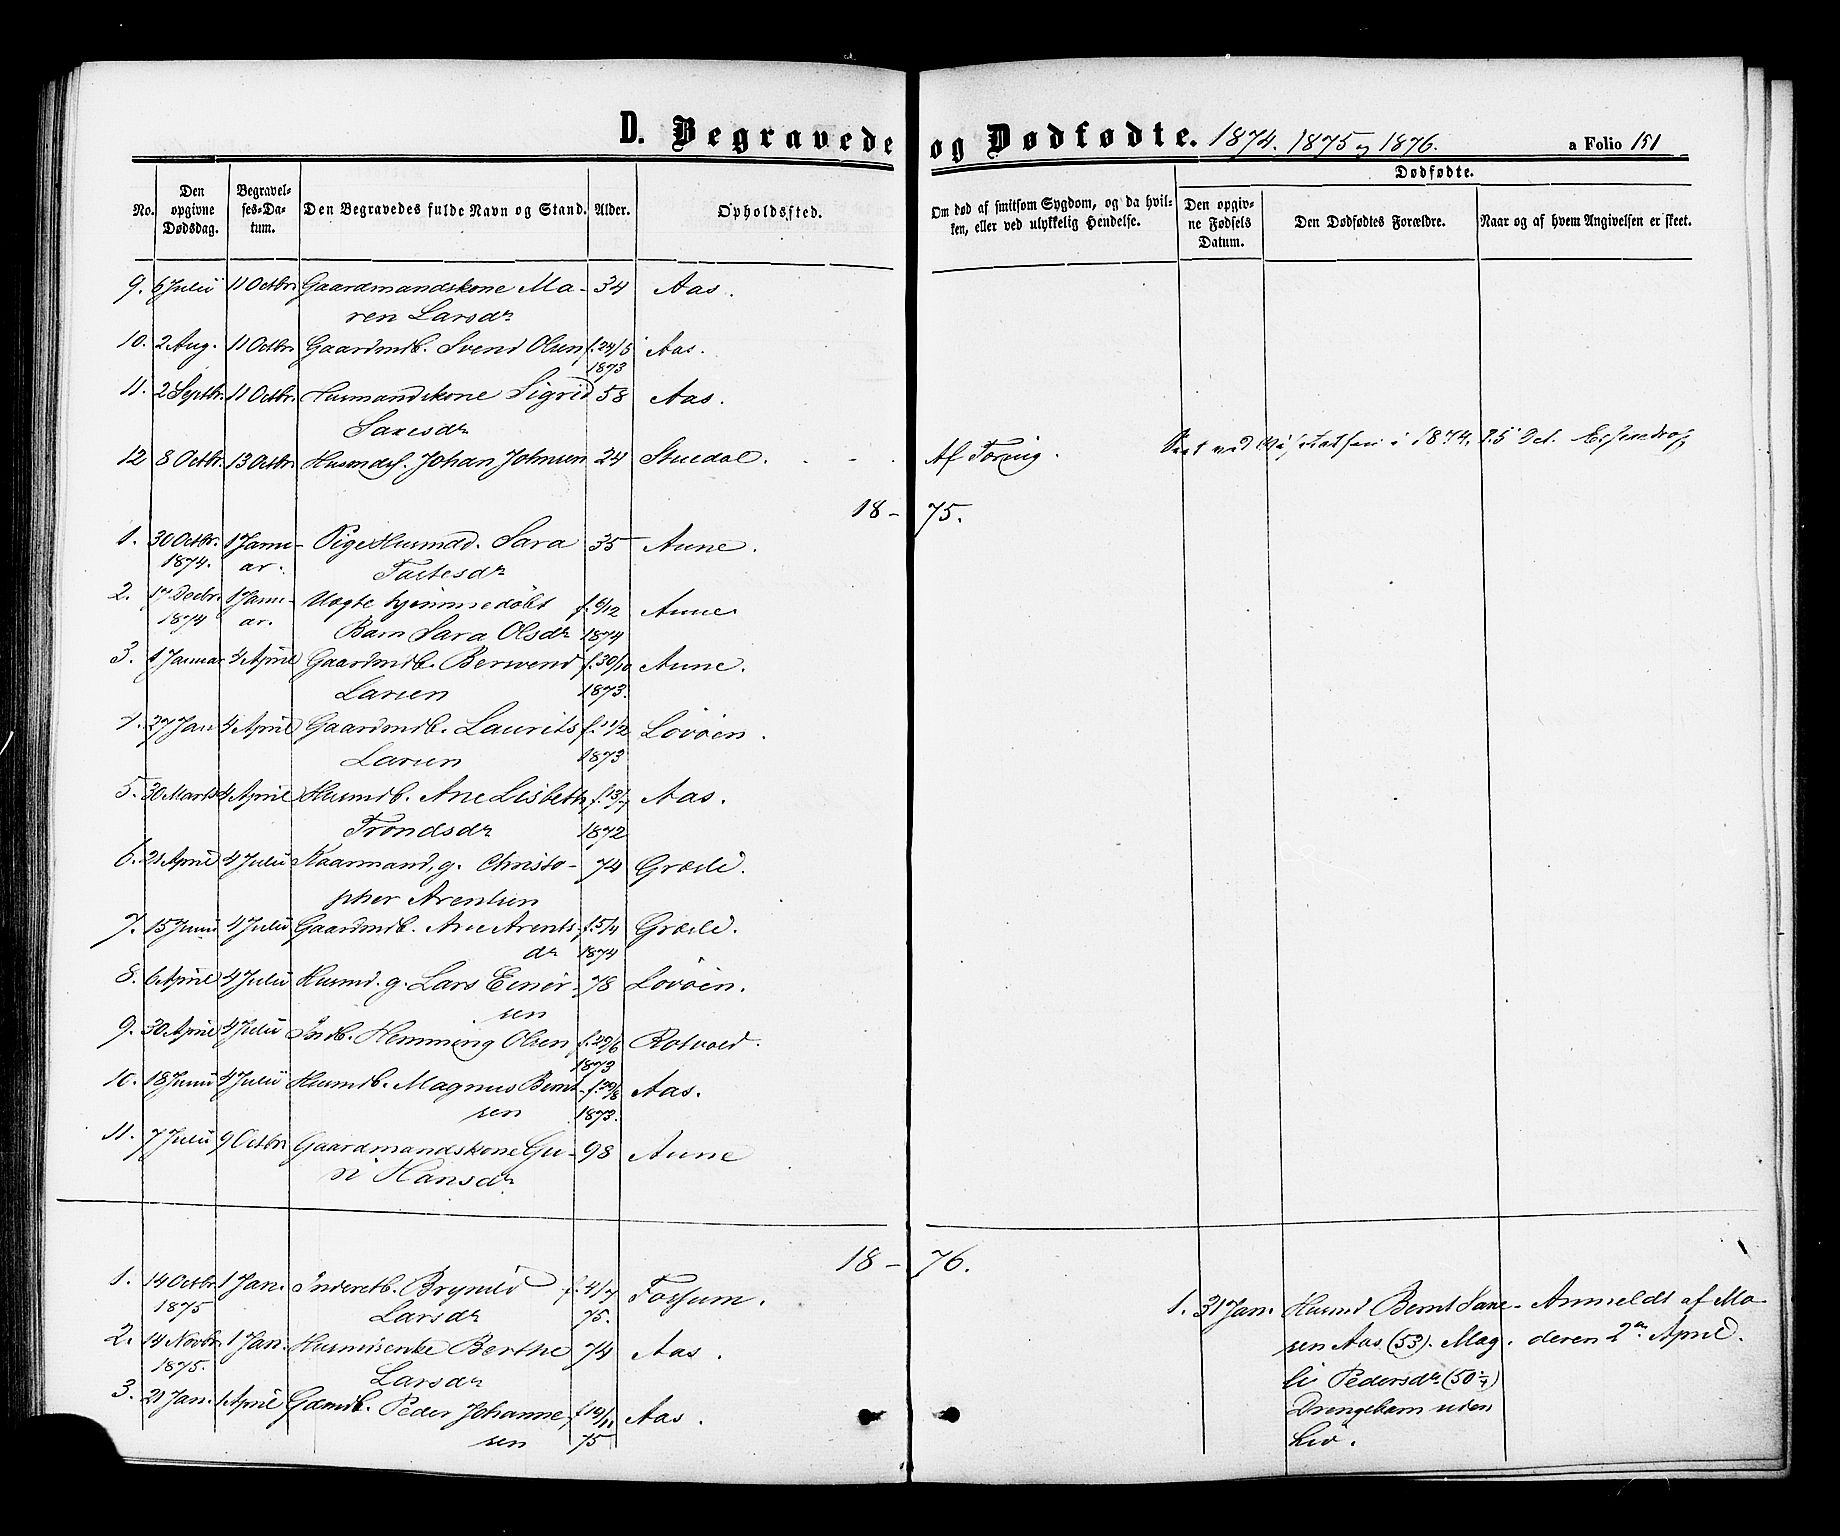 D. Begravede og Dødfødte. 1874. 1875 og 1876. a Folio 151
No.
Den opgivne Dødsdag.
Begravelses-Datum.
Den Begravedes fulde Navn og Stand.
Alder.
Opholdssted.
Om død af smitsom Sygdom, og da hvilken, eller ved ulykkelig Hendelse.
Dødfødte.
Den opgivne Fødsels Datum.
Den Dødfødtes Forældre.
Naar og af hvem Angivelsen er skeet.
9. 6 Julii 11 Octbr. Gaardmandskone Ma- 34 Aas.
ren Larsdr
10. 2 Aug. 11 Octbr. Gaardmdb. Svend Olsen f. 24/5 Aas.
1873
11. 2 Septbr. 11 Octbr. Husmandskone Sigrid 58 Aas.
Saxesdr
12 8 Octbr. 13 Octbr. Husmds. Johan Johnsen 24 Stuedal. Af Tæring.
i 1874, 25 Oct.
18-75.
1. 30 Octbr. 1 Janu- Pige Husmd. Sara 35 Aune.
1874. ar.
2. 17 Decbr. 1 Janu- Uægte hjemmedøbt f. 6/12 Aune.
1874 ar. Barn Sara Olsdr 1874
3. 1 Januar 4 April Gaardmdb. Bersvend f. 30/10 Aune.
Larsen 1873.
4. 27 Jan 4 April Gaardmdb. Laurits f. 11/2 Løvøen.
Larsen 1873
5. 30 Marts 4 April Husmdb. Ane Lisbeth f. 13/7 Aas.
Trondsdr 1872
6. 21 April 4 Julii Kaarmand, g. Christo- 74 Græsli.
pher Arentsen
7. 15 Junii 4 Julii Gaardmdb. Ane Arents- f. 5/4 Græsli.
dr 1874
8. 6 April 4 Julii Husmd. g. Lars Einer- 78 Løvøen.
sen
9. 30 April 4 Julii Indb. Hemming Olsen f. 29/6 Rotvold.
1873
10. 18 Junii 4 Julii Husmdb. Magnus Bernt- f. 20/8 Aas.
sen 1873.
11. 7 Julii 9 Octbr. Gaardmandskone Gu- 98 Aune
ri Hansdr
18-76.
1. 14 Octbr. 1 Jan. Inderstb. Brynild f. 4/7 Fossum.
1875 Larsdr 75.
2. 14 Novbr. 1 Jan. Husm.enke Berthe 74 Aas.
1875. Larsdr
3. 21 Jan. 1 April Gdmdb. Peder Johanne- f. 12/11 Aas.
sen 75
1. 31 Jan. Husmd Bernt Saxe- Anmeldt af Mo-
sen Aas (53). Mag- deren 2den April.
li Pedersdr (50 1/4)
Drengebarn uden
Liv.